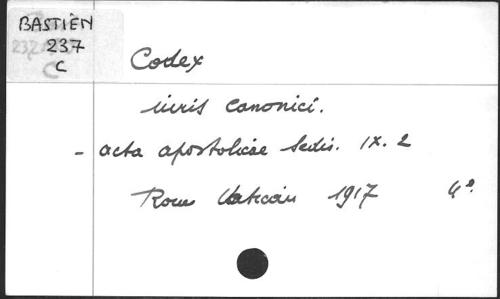 BASTIEN
237
C
Codex
iuris Canonici.
- acta apostolicae Sedis. IX. 2
Rome Vatican 1917 4°